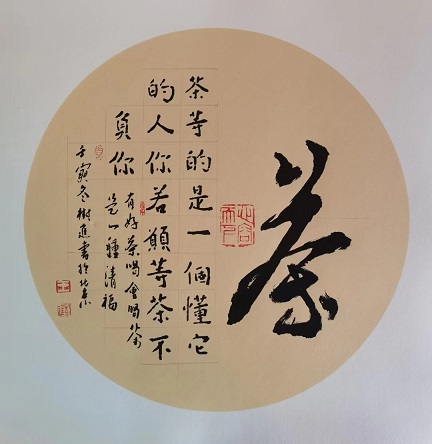 茶
茶等的是一個懂它
的人你若願等茶不
負你
有好茶喝會喝茶
是一種清福
壬寅冬樹進書於北京